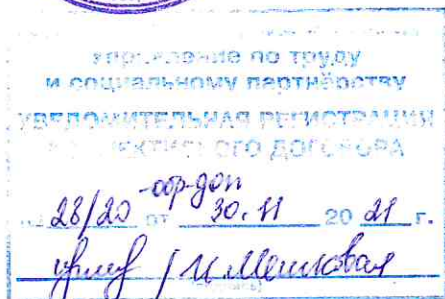 Управление по труду
и социальному партнёрству
УВЕДОМИТЕЛЬНАЯ РЕГИСТРАЦИЯ
КОЛЛЕКТИВНОГО ДОГОВОРА
-обр-доп
28/20 от 30.11 20 21 г.